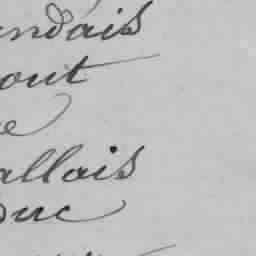 ndais
out
e
allais
duc